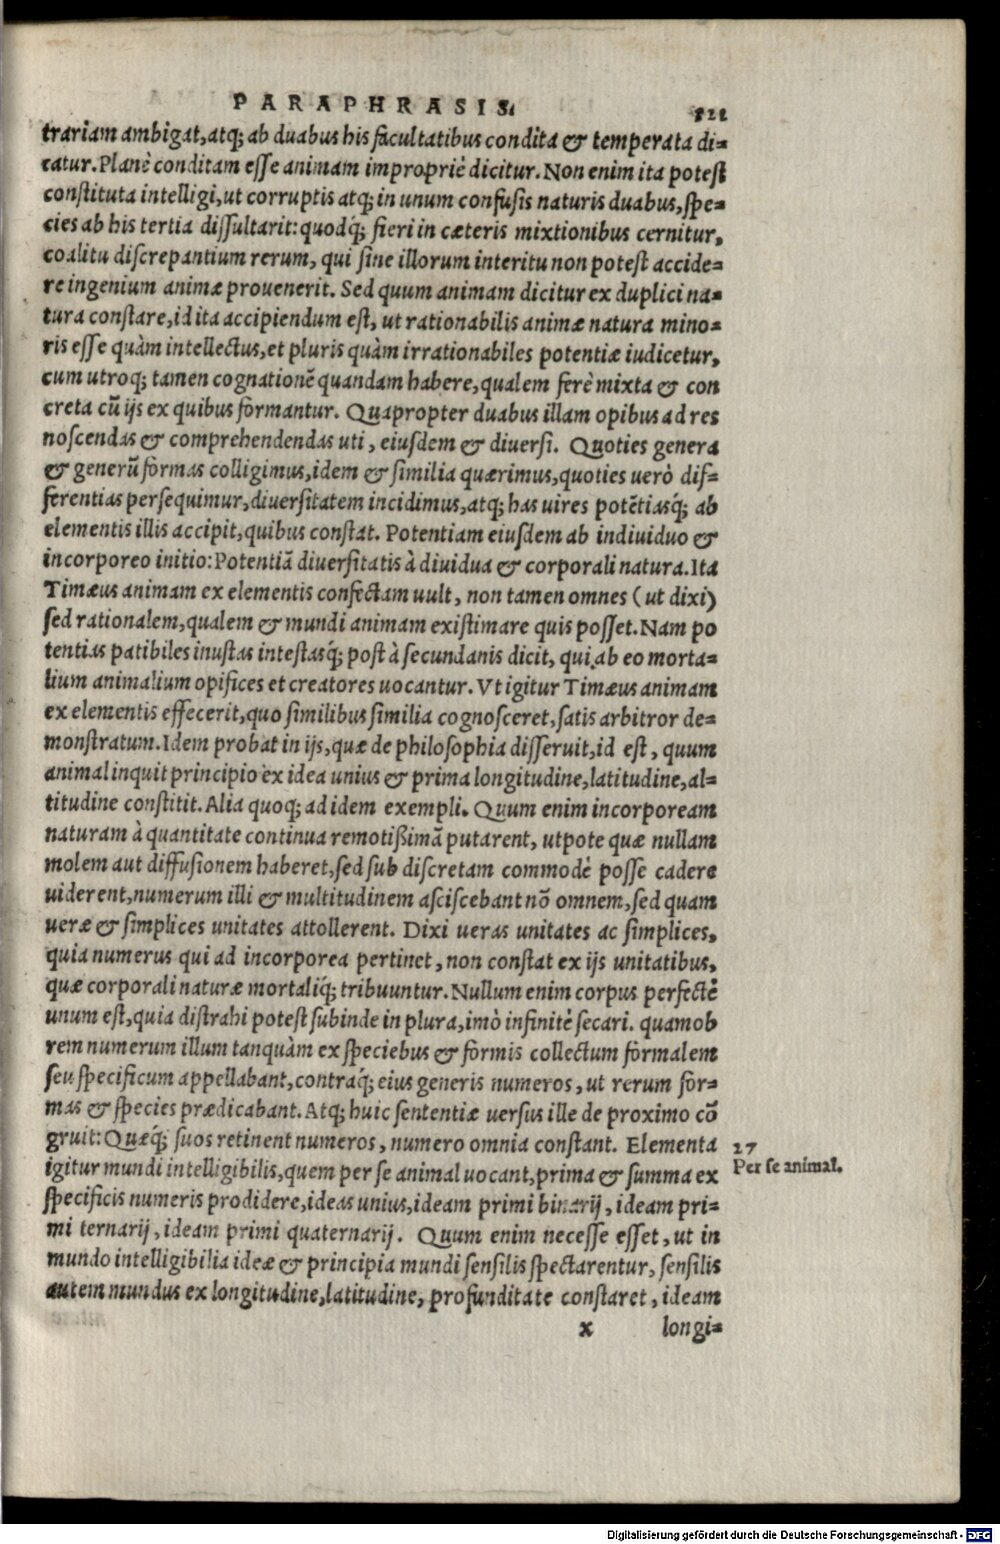 PARAPHRASIS.
trariam ambigat, atq; ab duabus his facultatibus condita & temperata di-
catur. Planè conditam esse animam impropriè dicitur. Non enim ita potest
constituta intelligi, ut corruptis atq; in unum confusis naturis duabus, spe-
cies ab his tertia dissultarit: quodq́; fieri in cæteris mixtionibus cernitur,
coalitu discrepantium rerum, qui sine illorum interitu non potest accide-
re ingenium animæ prouenerit. Sed quum animam dicitur ex duplici na-
tura constare, id ita accipiendum est, ut rationabilis animæ natura mino-
ris esse quàm intellectus, et pluris quàm irrationabiles potentiæ iudicetur,
cum utroq; tamen cognationē quandam habere, qualem ferè mixta & con
creta cū ijs ex quibus formantur. Quapropter duabus illam opibus ad res
noscendas & comprehendendas uti, eiusdem & diuersi. Quoties genera
& generū formas colligimus, idem & similia quærimus, quoties uerò dif-
ferentias persequimur, diuersitatem incidimus, atq; has uires potētiasq́; ab
elementis illis accipit, quibus constat. Potentiam eiusdem ab indiuiduo &
incorporeo initio: Potentiā diuersitatis à diuidua & corporali natura. Ita
Timæus animam ex elementis confectam uult, non tamen omnes (ut dixi)
sed rationalem, qualem & mundi animam existimare quis posset. Nam po
tentias patibiles inustas intestasq́; post à secundanis dicit, qui ab eo morta-
lium animalium opifices et creatores uocantur. Vt igitur Timæus animam
ex elementis effecerit, quo similibus similia cognosceret, satis arbitror de-
monstratum. Idem probat in ijs, quæ de philosophia disseruit, id est, quum
animal inquit principio ex idea unius & prima longitudine, latitudine, al-
titudine constitit. Alia quoq; ad idem exempli. Quum enim incorpoream
naturam à quantitate continua remotißimā putarent, utpote quæ nullam
molem aut diffusionem haberet, sed sub discretam commodè posse cadere
uiderent, numerum illi & multitudinem asciscebant nō omnem, sed quam
ueræ & simplices unitates attollerent. Dixi ueras unitates ac simplices,
quia numerus qui ad incorporea pertinet, non constat ex ijs unitatibus,
quæ corporali naturæ mortaliq́; tribuuntur. Nullum enim corpus perfectè
unum est, quia distrahi potest subinde in plura, imò infinitè secari. quamob
rem numerum illum tanquàm ex speciebus & formis collectum formalem
seu specificum appellabant, contraq́; eius generis numeros, ut rerum for-
mas & species prædicabant. Atq; huic sententiæ uersus ille de proximo cō
gruit: Quæq́; suos retinent numeros, numero omnia constant. Elementa
27
Per se animal.
igitur mundi intelligibilis, quem per se animal uocant, prima & summa ex
specificis numeris prodidere, ideas unius, ideam primi binarij, ideam pri-
mi ternarij, ideam primi quaternarij. Quum enim necesse esset, ut in
mundo intelligibilia ideæ & principia mundi sensilis spectarentur, sensilis
autem mundus ex longitudine, latitudine, profunditate constaret, ideam
x longi-
Digitalisierung gefördert durch die Deutsche Forschungsgemeinschaft - DFG